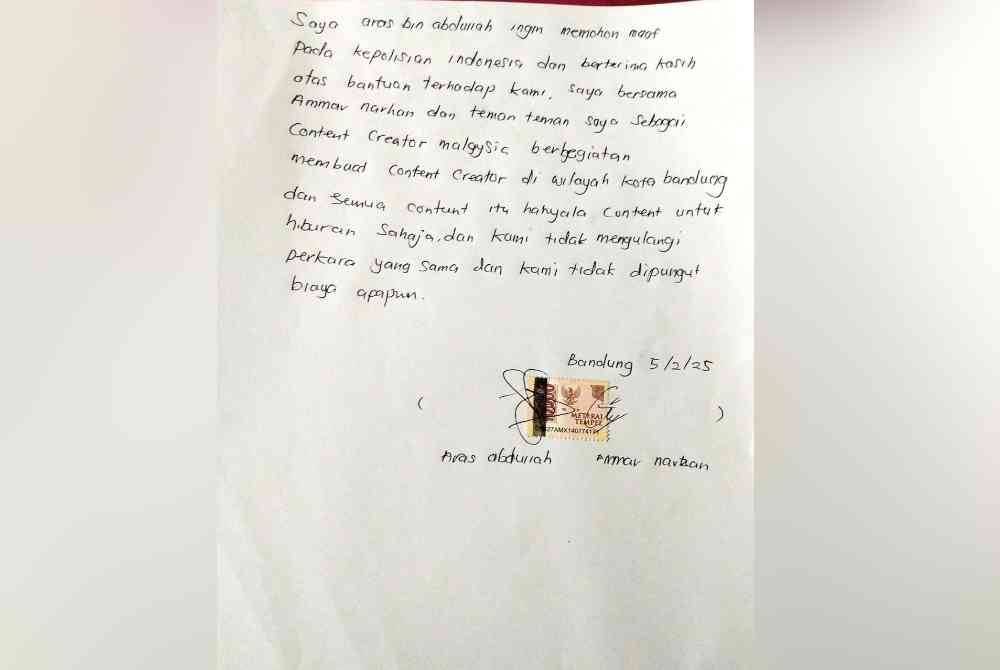 Saya aras bin abdullah ingin memohon maaf
Pada kepolisian indonesia dan berterima kasih
atas bantuan terhadap kami, saya bersama
Ammar narhan dan teman teman saya sebagai
Content Creator malaysia berkegiatan
membuat content creator di wilayah kota bandung
dan semua content itu hanyala content untuk
hiburan sahaja, dan kami tidak mengulangi
perkara yang sama dan kami tidak dipungut
biaya apapun.
Bandung 5/2/25
10000
METERAI
TEMPEL
( )
Aras abdullah Ammar narhan